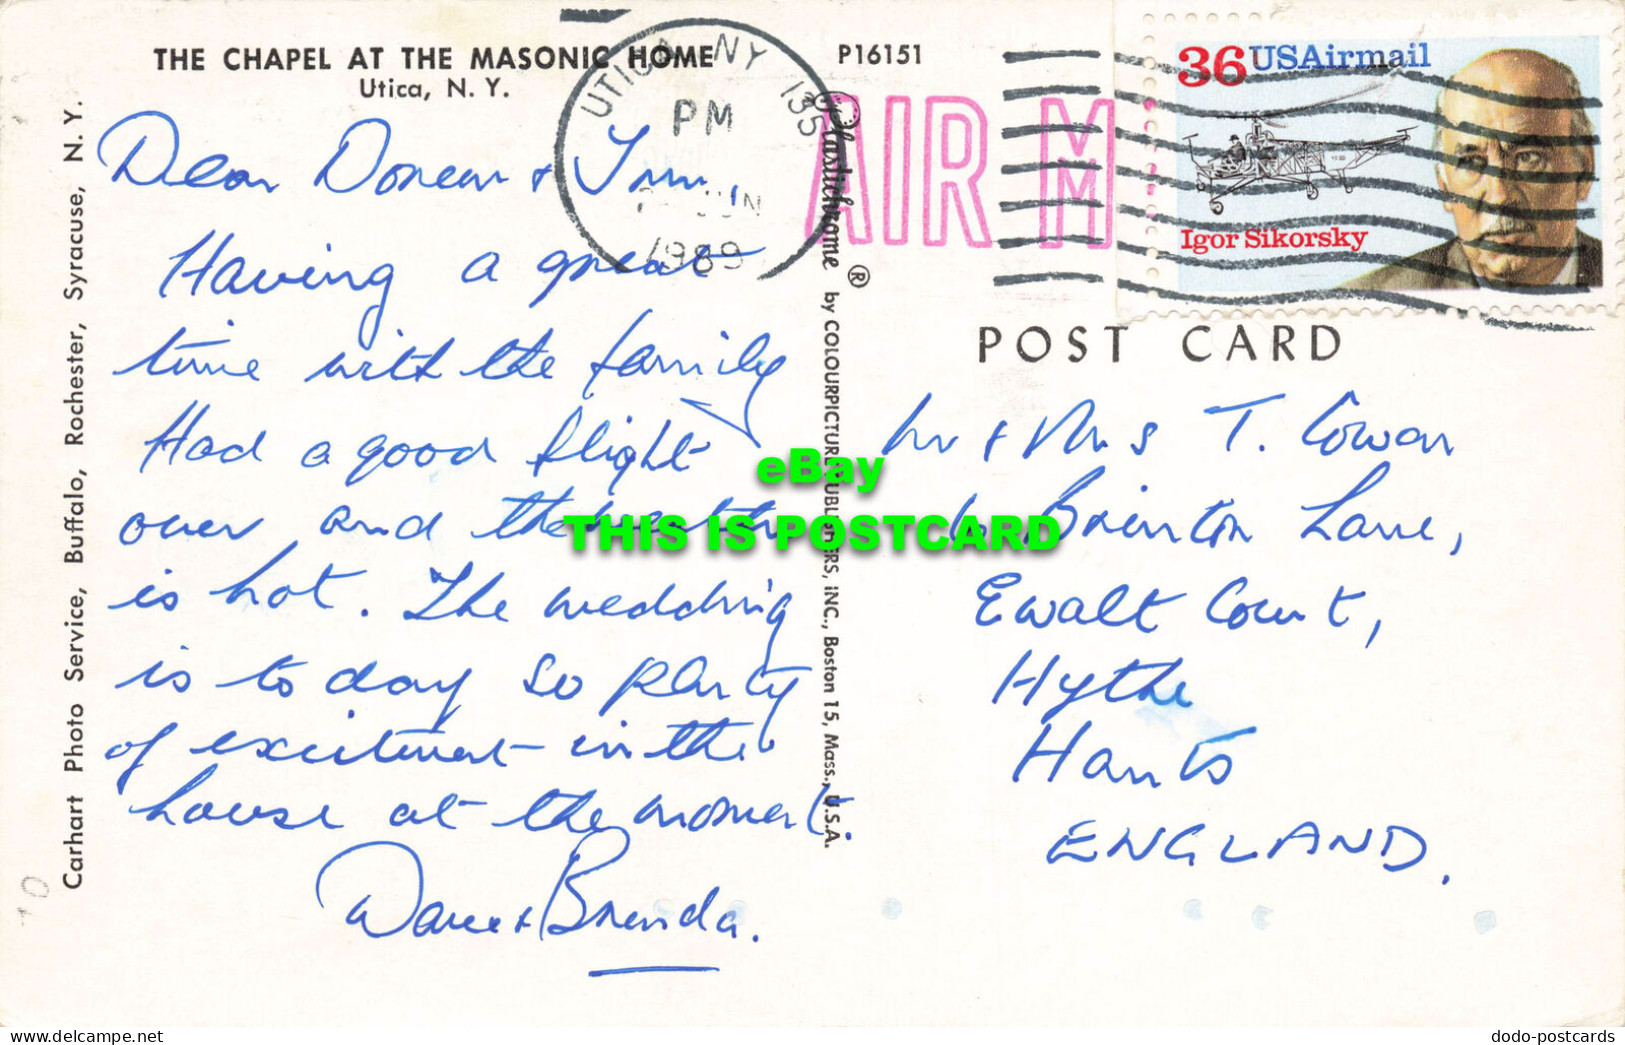 THE CHAPEL AT THE MASONIC HOME
Utica, N. Y.
P16151
Carhart Photo Service, Buffalo, Rochester, Syracuse, N. Y.
Plastichrome ® by COLOURPICTURE PUBLISHERS, INC., Boston 15, Mass., U.S.A.
UTICA NY 135
PM
JUN
1989
AIR M
36 USAirmail
Igor Sikorsky
POST CARD
Dear Doreen +
Having a great
time with the family
Had a good flight
over and the
is hot. The wedding
is to day so plenty
of excitment in the
house at the moment.
Dave + Brenda.
Mr + Mrs T. Cowan
Brinton Lane,
Ewalt Court,
Hythe
Hants
ENGLAND.
eBay
THIS IS POSTCARD
dodo-postcards